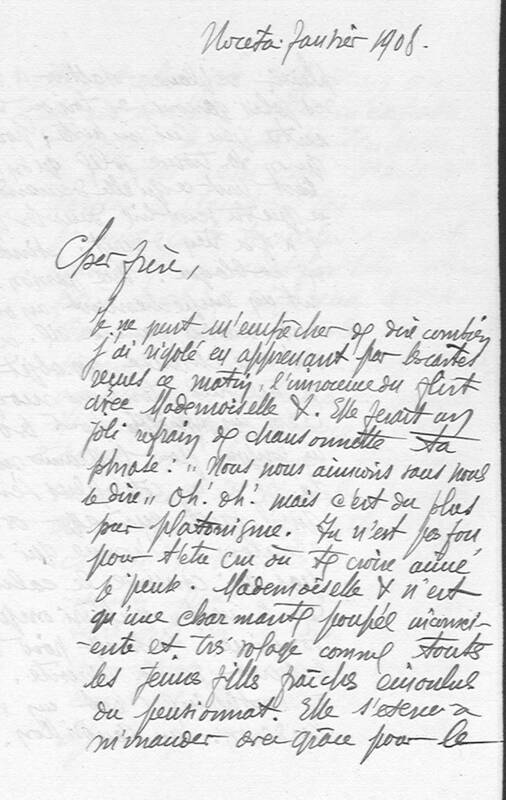 Noceta Janvier 1908.
Cher frère,
Je ne peut m'empêcher de dire combien
j'ai rigolé en apprenant par les cartes
reçues ce matin, l'innocence du flirt
avec Mademoiselle X. Elle ferait un
joli refrain de chansonnette ta
phrase: „Nous nous aimions sans nous
le dire„ oh! oh! mais c'est du plus
pur platonisme. Tu n'est pas fou
pour t'être cru ou te croire aimé
je pense. Mademoiselle X n'est
qu'une charmante poupée inconsci-
ente et très volage comme toute
les jeunes filles fraîches
du pensionnat. Elle s'exerce a
minauder avec grâce pour le